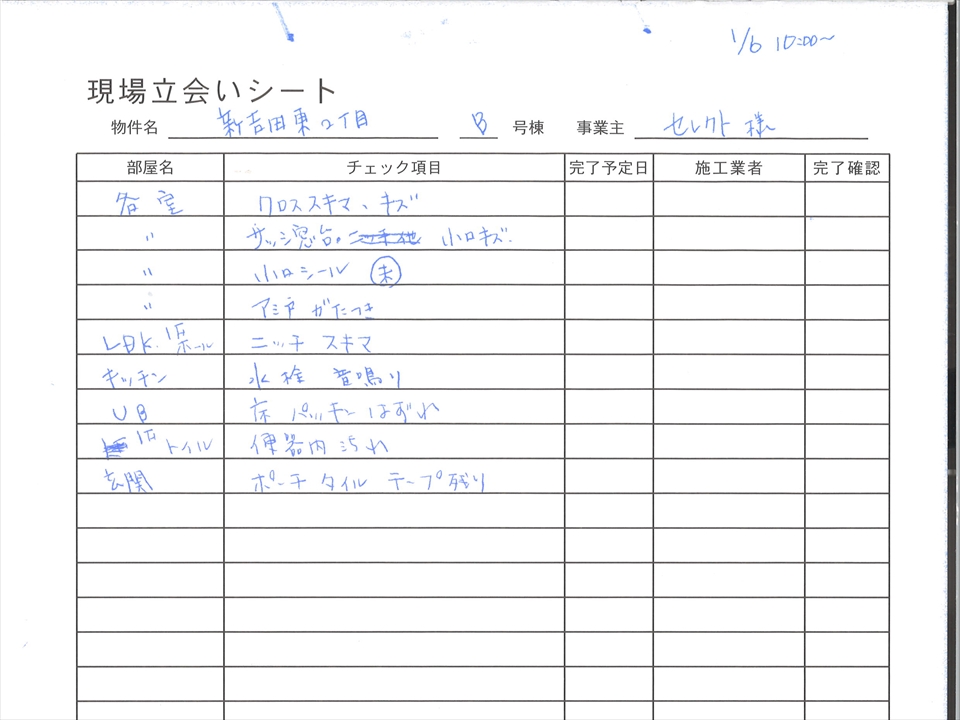 1/6 10:00〜
現場立会いシート
物件名 新吉田東2丁目 B 号棟 事業主 セレクト 様
部屋名 チェック項目 完了予定日 施工業者 完了確認
各室 クロススキマ、キズ
〃 サッシ窓台。 小口キズ.
〃 小口シール 未
〃 アミ戸 がたつき
LDK. 1Fホール ニッチ スキマ
キッチン 水栓 音鳴り
UB 床 パッキン はずれ
1F トイレ 便器内 汚れ
玄関 ポーチ タイル テープ残り